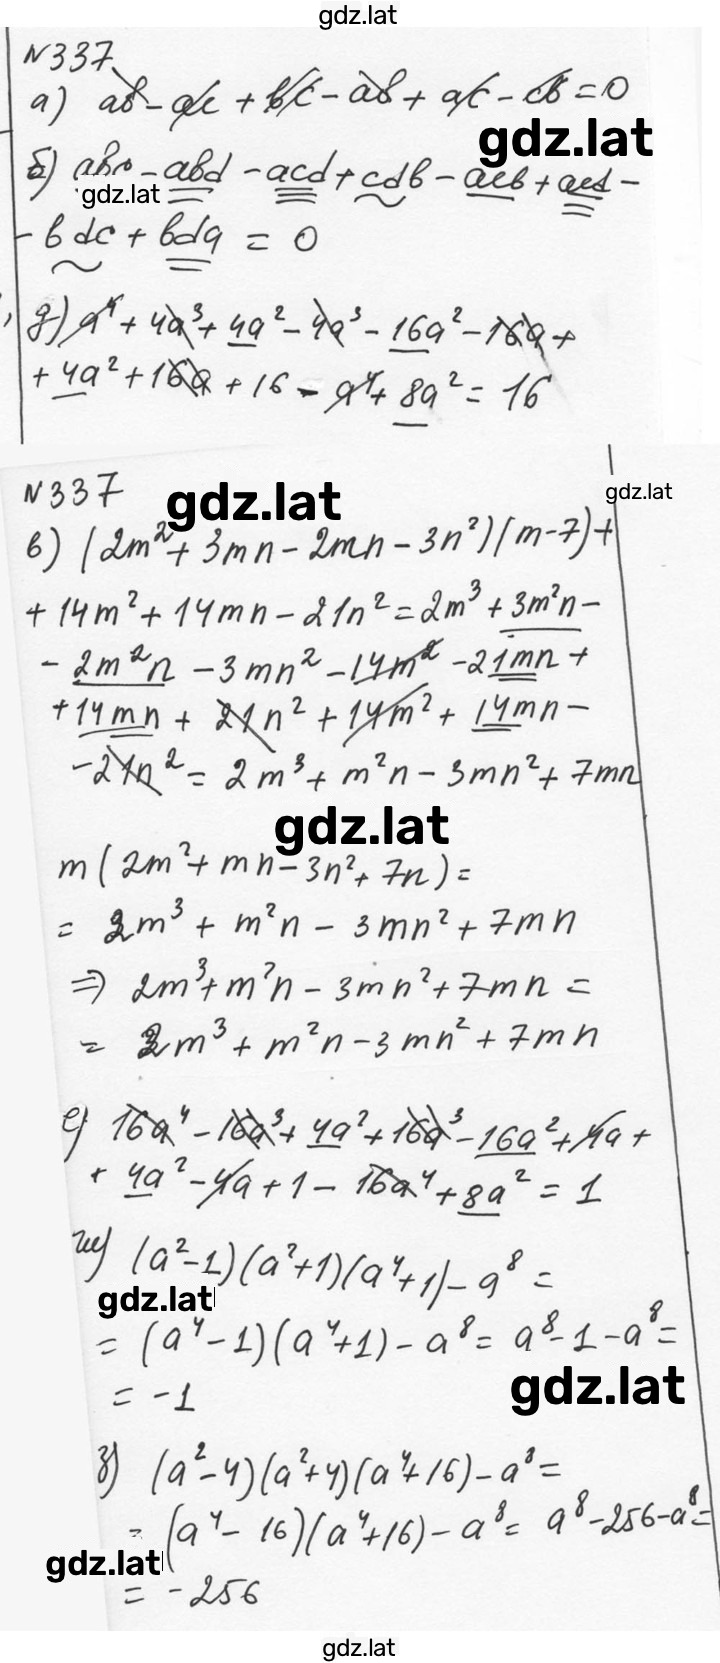 gdz.lat
N337
а) ab - ac + bc - ab + ac - cb = 0
gdz.lat
б) abc - abd - acd + cdb - acb + acd -
gdz.lat
- bdc + bda = 0
д) a⁴ + 4a³ + 4a² - 4a³ - 16a² - 16a +
+ 4a² + 16a + 16 - a⁴ + 8a² = 16
N337
gdz.lat
gdz.lat
в) (2m² + 3mn - 2mn - 3n²)(m-7) +
+ 14m² + 14mn - 21n² = 2m³ + 3m²n -
- 2m²n - 3mn² - 14m² - 21mn +
+ 14mn + 21n² + 14m² + 14mn -
- 21n² = 2m³ + m²n - 3mn² + 7mn
gdz.lat
m(2m² + mn - 3n² + 7n) =
= 2m³ + m²n - 3mn² + 7mn
⇒ 2m³ + m²n - 3mn² + 7mn =
= 2m³ + m²n - 3mn² + 7mn
е) 16a⁴ - 16a³ + 4a² + 16a³ - 16a² + 4a +
+ 4a² - 4a + 1 - 16a⁴ + 8a² = 1
ж) (a²-1)(a²+1)(a⁴+1) - a⁸ =
gdz.lat
= (a⁴-1)(a⁴+1) - a⁸ = a⁸-1-a⁸ =
= -1
gdz.lat
з) (a²-4)(a²+4)(a⁴+16) - a⁸ =
= (a⁴-16)(a⁴+16) - a⁸ = a⁸-256-a⁸ =
gdz.lat
= -256
gdz.lat